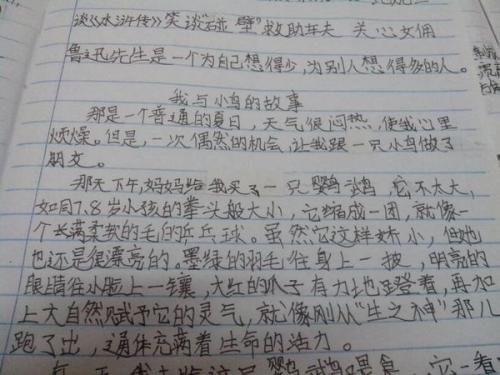 谈《水浒传》 笑谈"碰壁" 救助车夫 关心女佣
鲁迅先生是一个为自己想得少,为别人想得多的人。
我与小鸟的故事
那是一个普通的夏日,天气很闷热,使我心里
烦燥。但是,一次偶然的机会,让我跟一只小鸟做了
朋友。
那天下午,妈妈给我买了一只鹦鹉,它不太大,
如同7.8岁小孩的拳头般大小,它缩成一团,就像一
个长满柔软的毛的乒乓球。虽然它这样娇小,但她
也还是很漂亮的。墨绿的羽毛往身上一披,明亮的
眼睛往小脸上一镶,大红的爪子有力地蹬着,再加
上大自然赋予它的灵气,就像刚从"生之神"那儿
跑了出,通体充满着生命的活力。